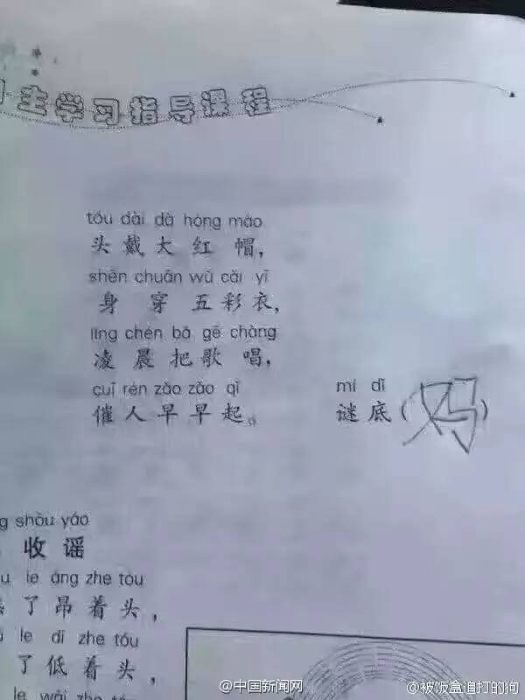 主学习指导课程
tóu dài dà hóng mào
头戴大红帽，
shēn chuān wǔ cǎi yī
身穿五彩衣，
líng chén bǎ gē chàng
凌晨把歌唱，
cuī rén zǎo zǎo qǐ mí dǐ
催人早早起。 谜底（妈）
shōu yáo
收谣
le áng zhe tóu
了昂着头，
le dī zhe tóu
了低着头，
le wāi zhe
@中国新闻网